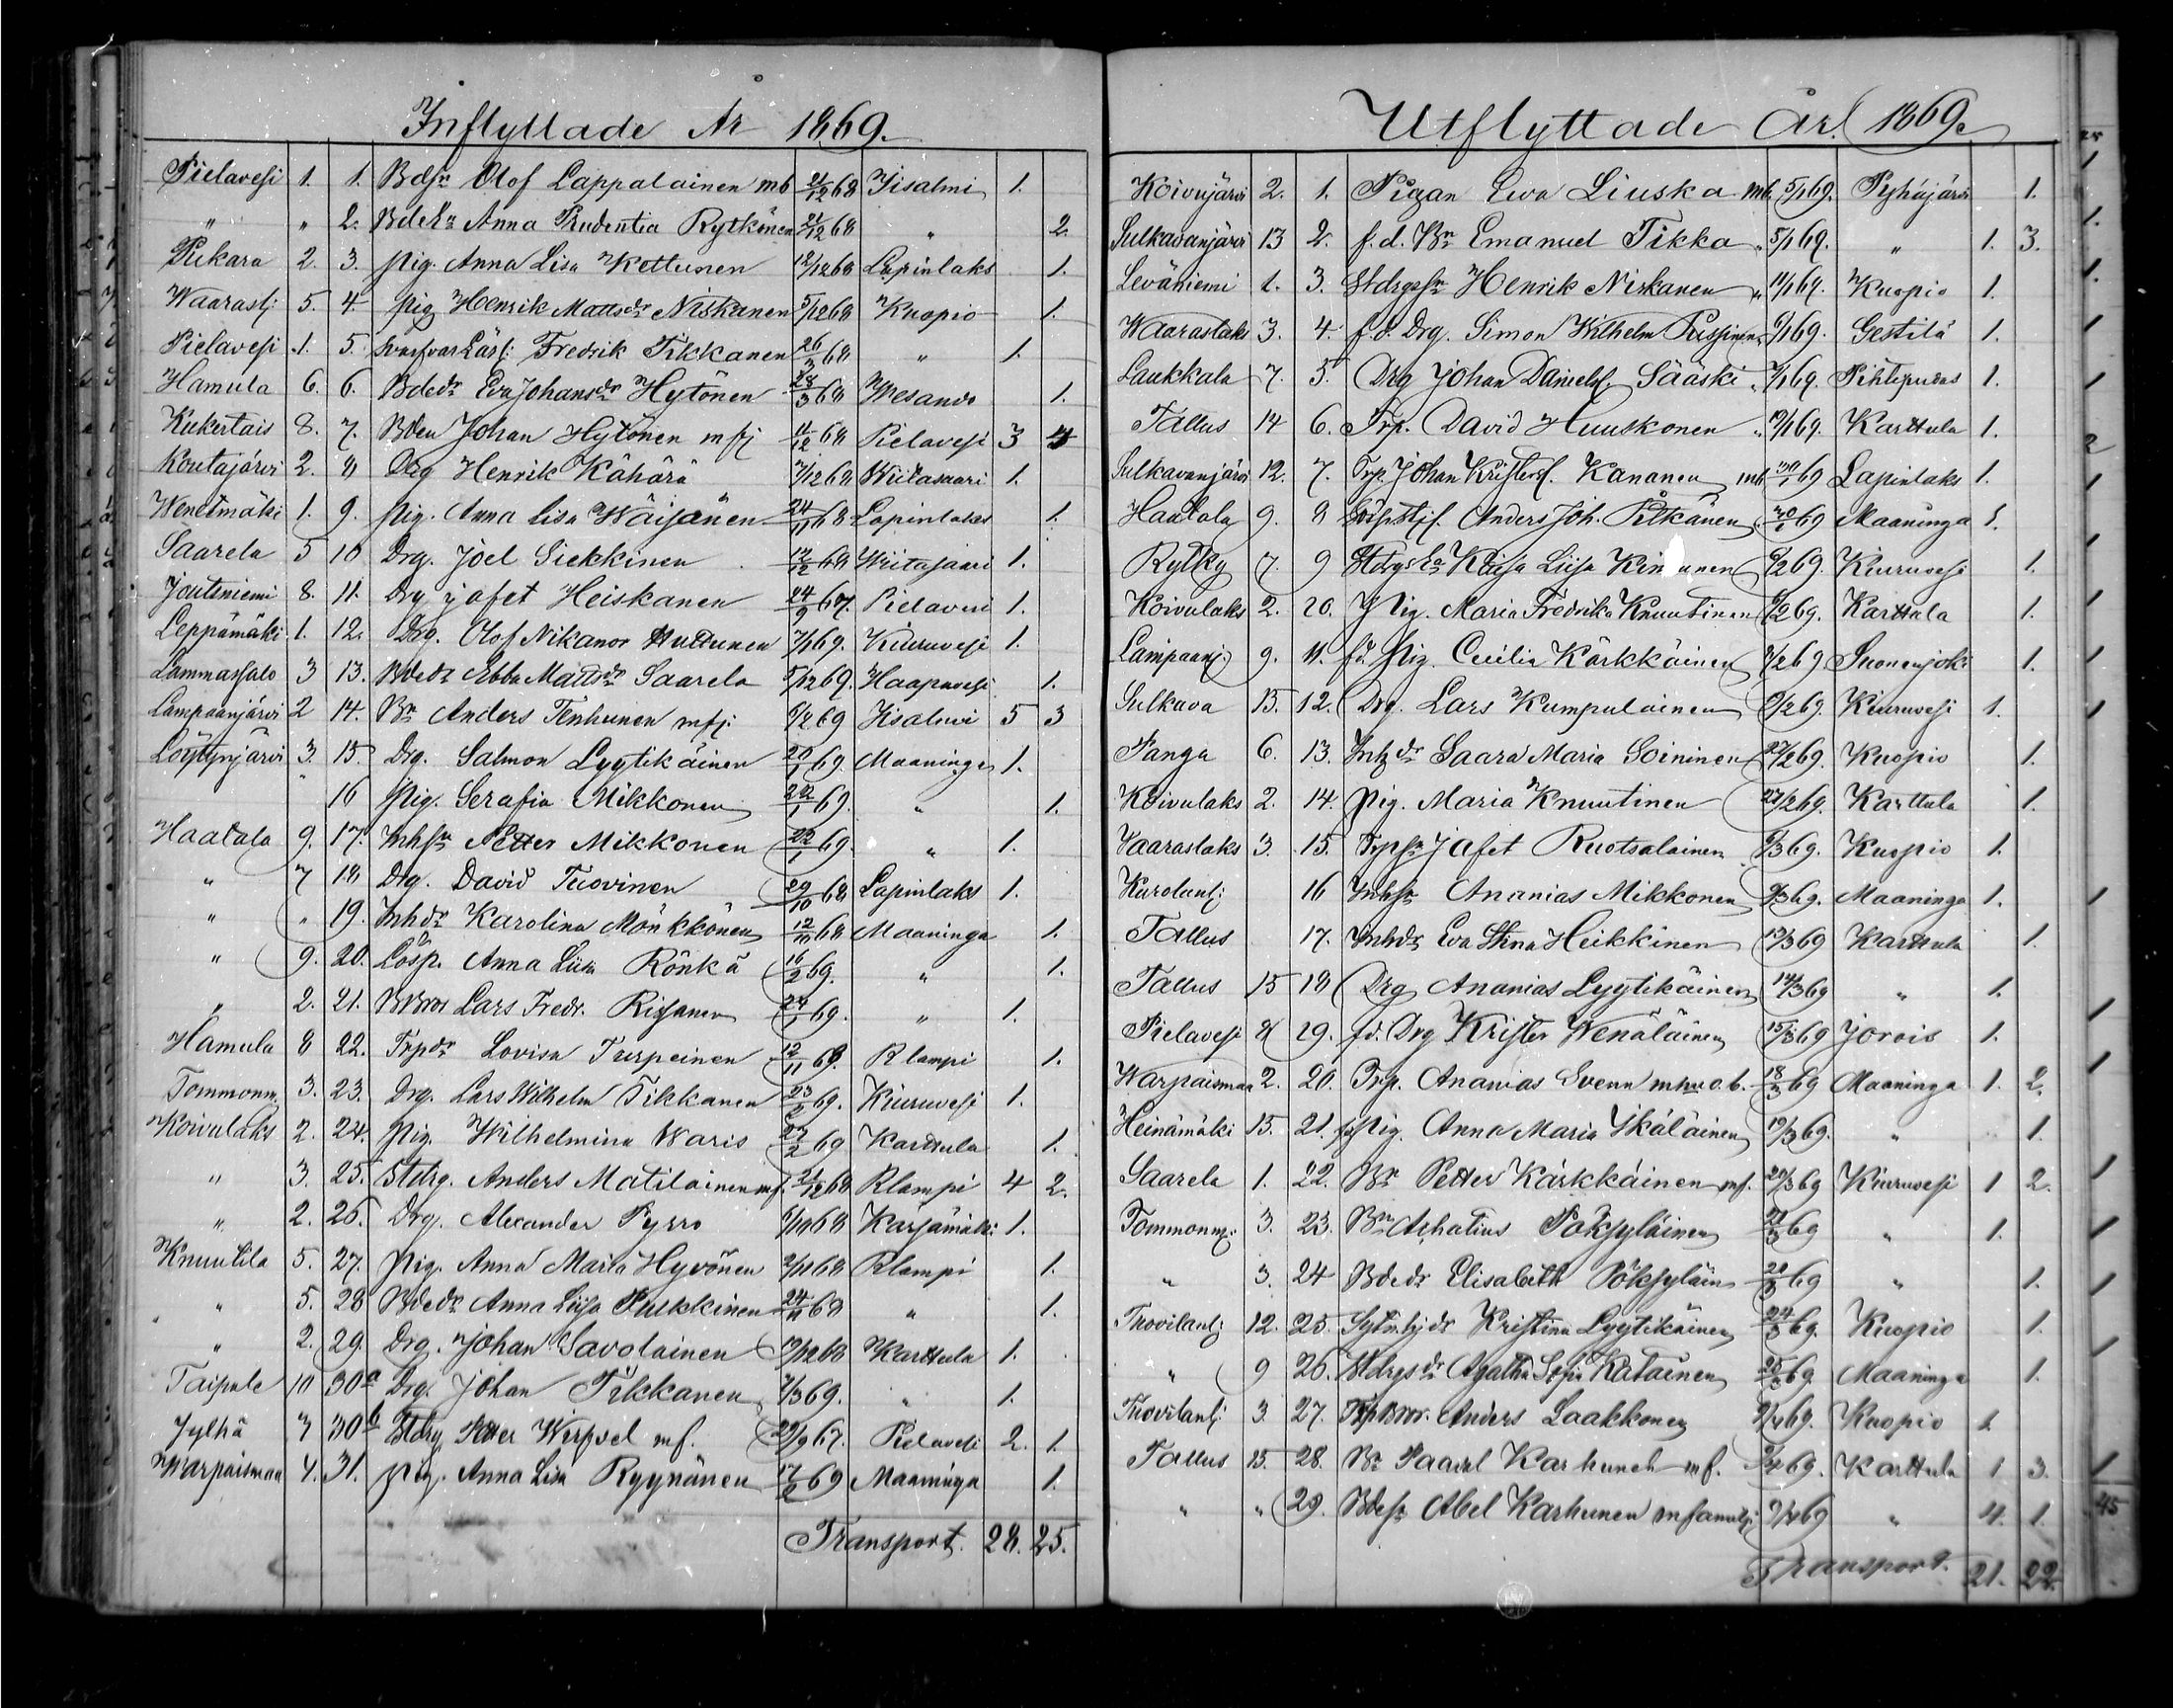 Inflyttade År 1869.
Pielavesi 1. 1. Bdsn Olof Lappalainen mb 21/12 68 Iisalmi 1.
" " 2. Bdeka Anna Prudentia Rytkönen 21/12 68 " 2.
Pukara 2. 3. Pig. Anna Lisa Kettunen 12/12 68 Lapinlaks 1.
Waarastj 5. 4. Pig Henrik Mattsdr Niskanen 5/12 68 Kuopio 1.
Pielavesi 1. 5. Fredrik Tikkanen 26/3 68 " 1.
Hamula 6. 6. Bdedr Eva Johansdr Hytönen 28/3 68 Wesando 1.
Kukertais 8. 7. Bden Johan Hytönen mfj 11/12 68 Pielavesi 3 4
Koutajärvi 2. 8 Drg Henrik Kähärä 7/12 68 Wiitasaari 1.
Wenetmäki 1. 9. Pig. Anna Lisa Wäisänen 24/11 68 Lapinlaks 1.
Saarela 5 10 Drg. Joel Siekkinen 12/12 68 Wiitasaari 1.
Joutsniemi 8. 11. Drg Jafet Heiskanen 24/9 67. Pielavesi 1.
Leppämäki 1. 12. Drg. Olof Nikanor Huttunen 7/1 69. Kiuruvesi 1.
Lammassalo 3 13. Bdedr Ebba Mattsdr Saarela 5/12 69. Haapavesi 1.
Lampaanjärvi 2 14. Bn Anders Tenhunen mfj. 6/2 69 Iisalmi 5 3
Löytynjärvi 3. 15. Drg. Salmon Lyytikäinen 20/1 69. Maaninga 1.
16 Pig. Serafia Mikkonen 22/1 69. " 1.
Haatala 9. 17. Inhsn Petter Mikkonen 22/1 69. " 1.
" 7 18 Drg. David Tuovinen 29/10 68 Lapinlaks 1.
" " 19. Inhdr Karolina Mönkkönen 12/11 68 Maaninga 1.
" 9. 20. Lösp. Anna Liisa Rönkä 16/2 69. " 1.
" 2. 21. Bbror Lars Fredr. Rissanen 24/1 69. " 1.
Hamula 8 22. Trpdr Lovisa Turpeinen 12/11 68. Rlampi 1.
Tommonm. 3. 23. Drg. Lars Wilhelm Tikkanen 23/2 69. Kiuruvesi 1.
Koivulaks 2. 24. Pig. Wilhelmina Waris 27/2 69 Karttula 1.
" 3. 25. Stdrg. Anders Matilainen mf. 21/12 68 Rlampi 4 2.
" 2. 26. Drg. Alexander Pyrro 6/10 68 Kärsämäki 1.
Knuutila 5. 27. Pig. Anna Maria Hyvönen 2/11 68 Rlampi 1.
" 5. 28 Bdedr Anna Liisa Pulkkinen 24/11 68 " 1.
" 2. 29. Drg. Johan Savolainen 9/12 68 Karttula 1.
Taipale 10 30a Drg. Johan Tikkanen 7/3 69. " 1.
Jylhä 7 30b Stdrg Petter Werfvel mf. 22/9 67. Pielavesi 2. 1.
Warpaismaa 4. 31. Pig. Anna Lisa Ryynänen 17/2 69 Maaninga 1.
Transport. 28. 25.
Utflyttade År. 1869.
Koivujärvi 2. 1. Pigan Eva Liuska mb. 5/1 69. Pyhäjärvi 1.
Sulkavanjärvi 13 2. f.d. Bn Emanuel Tikka " 5/1 69. " 1. 3.
Leväniemi 1. 3. Stdrgsn Henrik Niskanen " 11/1 69. Kuopio 1.
Waaraslaks 3. 4. f.d. Drg. Simon Wilhelm 9/1 69. Gestilä 1.
Laukkala 7. 5. Drg Johan Danielsf. Sääski " 7/1 69. Pihtipudas 1.
Tallus 14 6. Trp. David Huuskonen " 19/1 69. Karttula 1.
Sulkavanjärvi 12. 7. Trp. Johan Kristersf. Kananen mb 30/1 69 Lapinlaks 1.
Haatala 9. 8 Anders Joh. Pitkänen 30/1 69 Maaninga 1.
Rytky 7. 9 Kaisa Liisa 6/2 69. Kiuruvesi 1.
Koivulaks 2. 10. Pig. Maria Fredrika Knuutinen 9/2 69. Karttula 1.
Lampaanj. 9. 11. fd. Pig. Cecilia Kärkkäinen 7/2 69 Suonenjoki 1.
Sulkava 15. 12. Drg. Lars Kumpulainen 9/2 69. Kiuruvesi 1.
Panga 6. 13. Inhdr Saara Maria Soininen 27/2 69. Kuopio 1.
Koivulaks 2. 14. Pig. Maria Knuutinen 27/2 69. Karttula 1.
Vaaraslaks 3. 15. Trpsn Jafet Ruotsalainen 6/3 69. Kuopio 1.
Karolantj. 16 Inhsn Ananias Mikkonen 9/3 69. Maaninga 1.
Tallus 17. Inhdr Eva Stina Heikkinen 13/3 69 Karttula 1.
Tallus 15 18 Drg Ananias Lyytikäinen 14/3 69 " 1.
Pielavesi 8 19. fd. Drg Krister Wenäläinen 15/3 69 Jorois 1.
Warpaismaa 2. 20. Trp. Ananias Svenn mhu o. b. 18/3 69 Maaninga 1. 2.
Heinämäki 15. 21. Pig. Anna Maria Ikäläinen 19/3 69. " 1.
Saarela 1. 22. Bn Petter Kärkkäinen mf. 20/3 69 Kiuruvesi 1 2.
Tommonm. 3. 23. Bn Achatius Pöksyläinen 21/3 69 " 1.
" 3. 24 Bdedr Elisabeth Pöksyläin 20/3 69 " 1.
Tuovilantj 12. 25. Sytnhjdr Kristina Lyytikäinen 24/3 69. Kuopio 1.
" 9 26. Stdrgsdr Agatha Sofia Katainen 25/3 69 Maaninga 1.
Tuovilantj 3. 27. Trpbror. Anders Laakkonen 2/4 69. Kuopio 1
Tallus 15. 28. Bn Paavel Karhunen mf. 7/4 69. Karttula 1 3.
" " 29. Bdesn Abel Karhunen m familj 7/4 69 " 4. 1.
Transport. 21. 22.
45